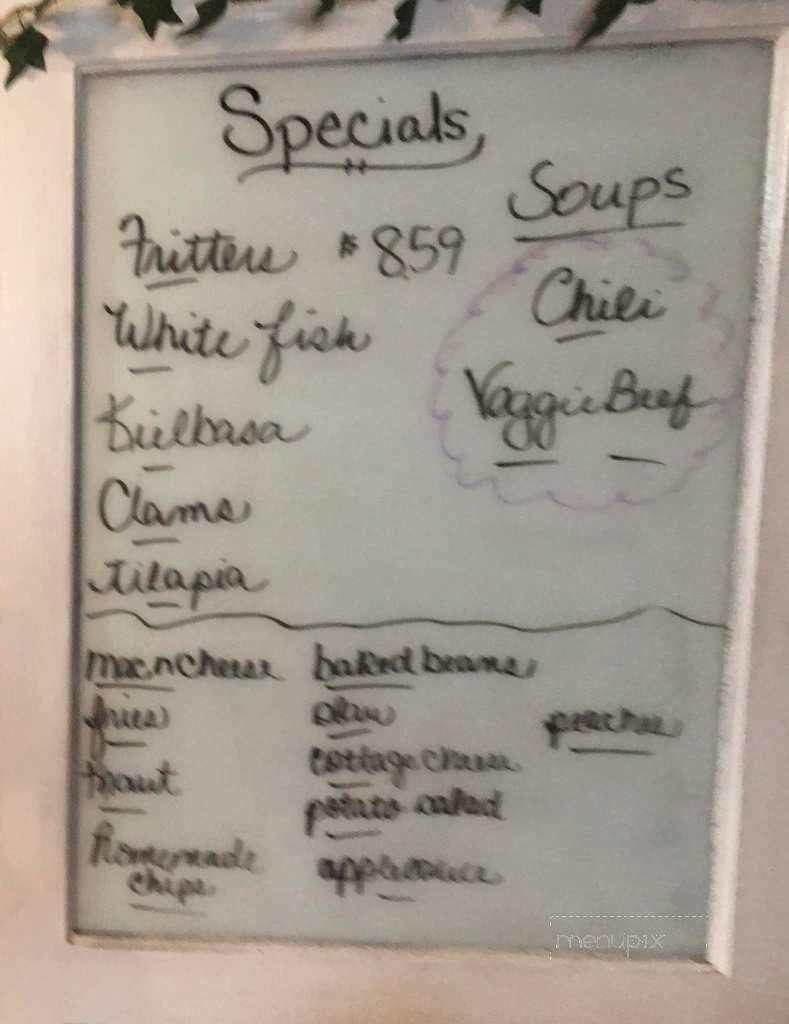 Specials
Fritters $8.59
White fish
Kielbasa
Clams
Tilapia
Soups
Chili
Veggie Beef
mac n cheese
fries
kraut
Homemade
chips
baked beans
slaw
cottage cheese
potato salad
applesauce
peaches
menupix